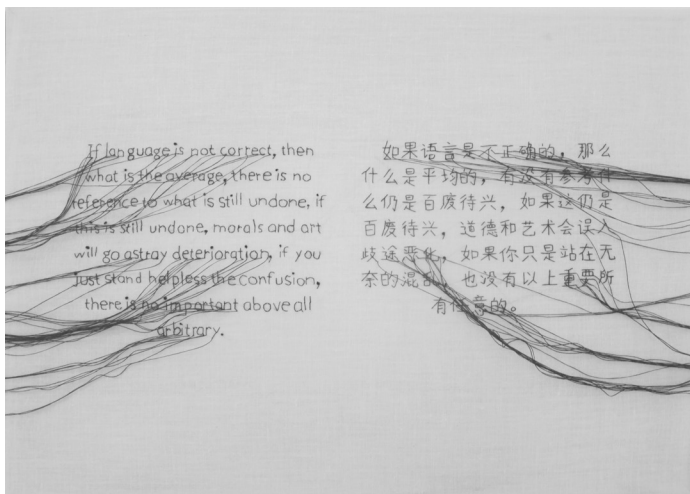 If language is not correct, then
what is the average, there is no
reference to what is still undone, if
this is still undone, morals and art
will go astray deterioration, if you
just stand helpless the confusion,
there is no important above all
arbitrary.
如果语言是不正确的，那么
什么是平均的，有没有参考什
么仍是百废待兴，如果这仍是
百废待兴，道德和艺术会误入
歧途恶化，如果你只是站在无
奈的混乱，也没有以上重要所
有任意的。